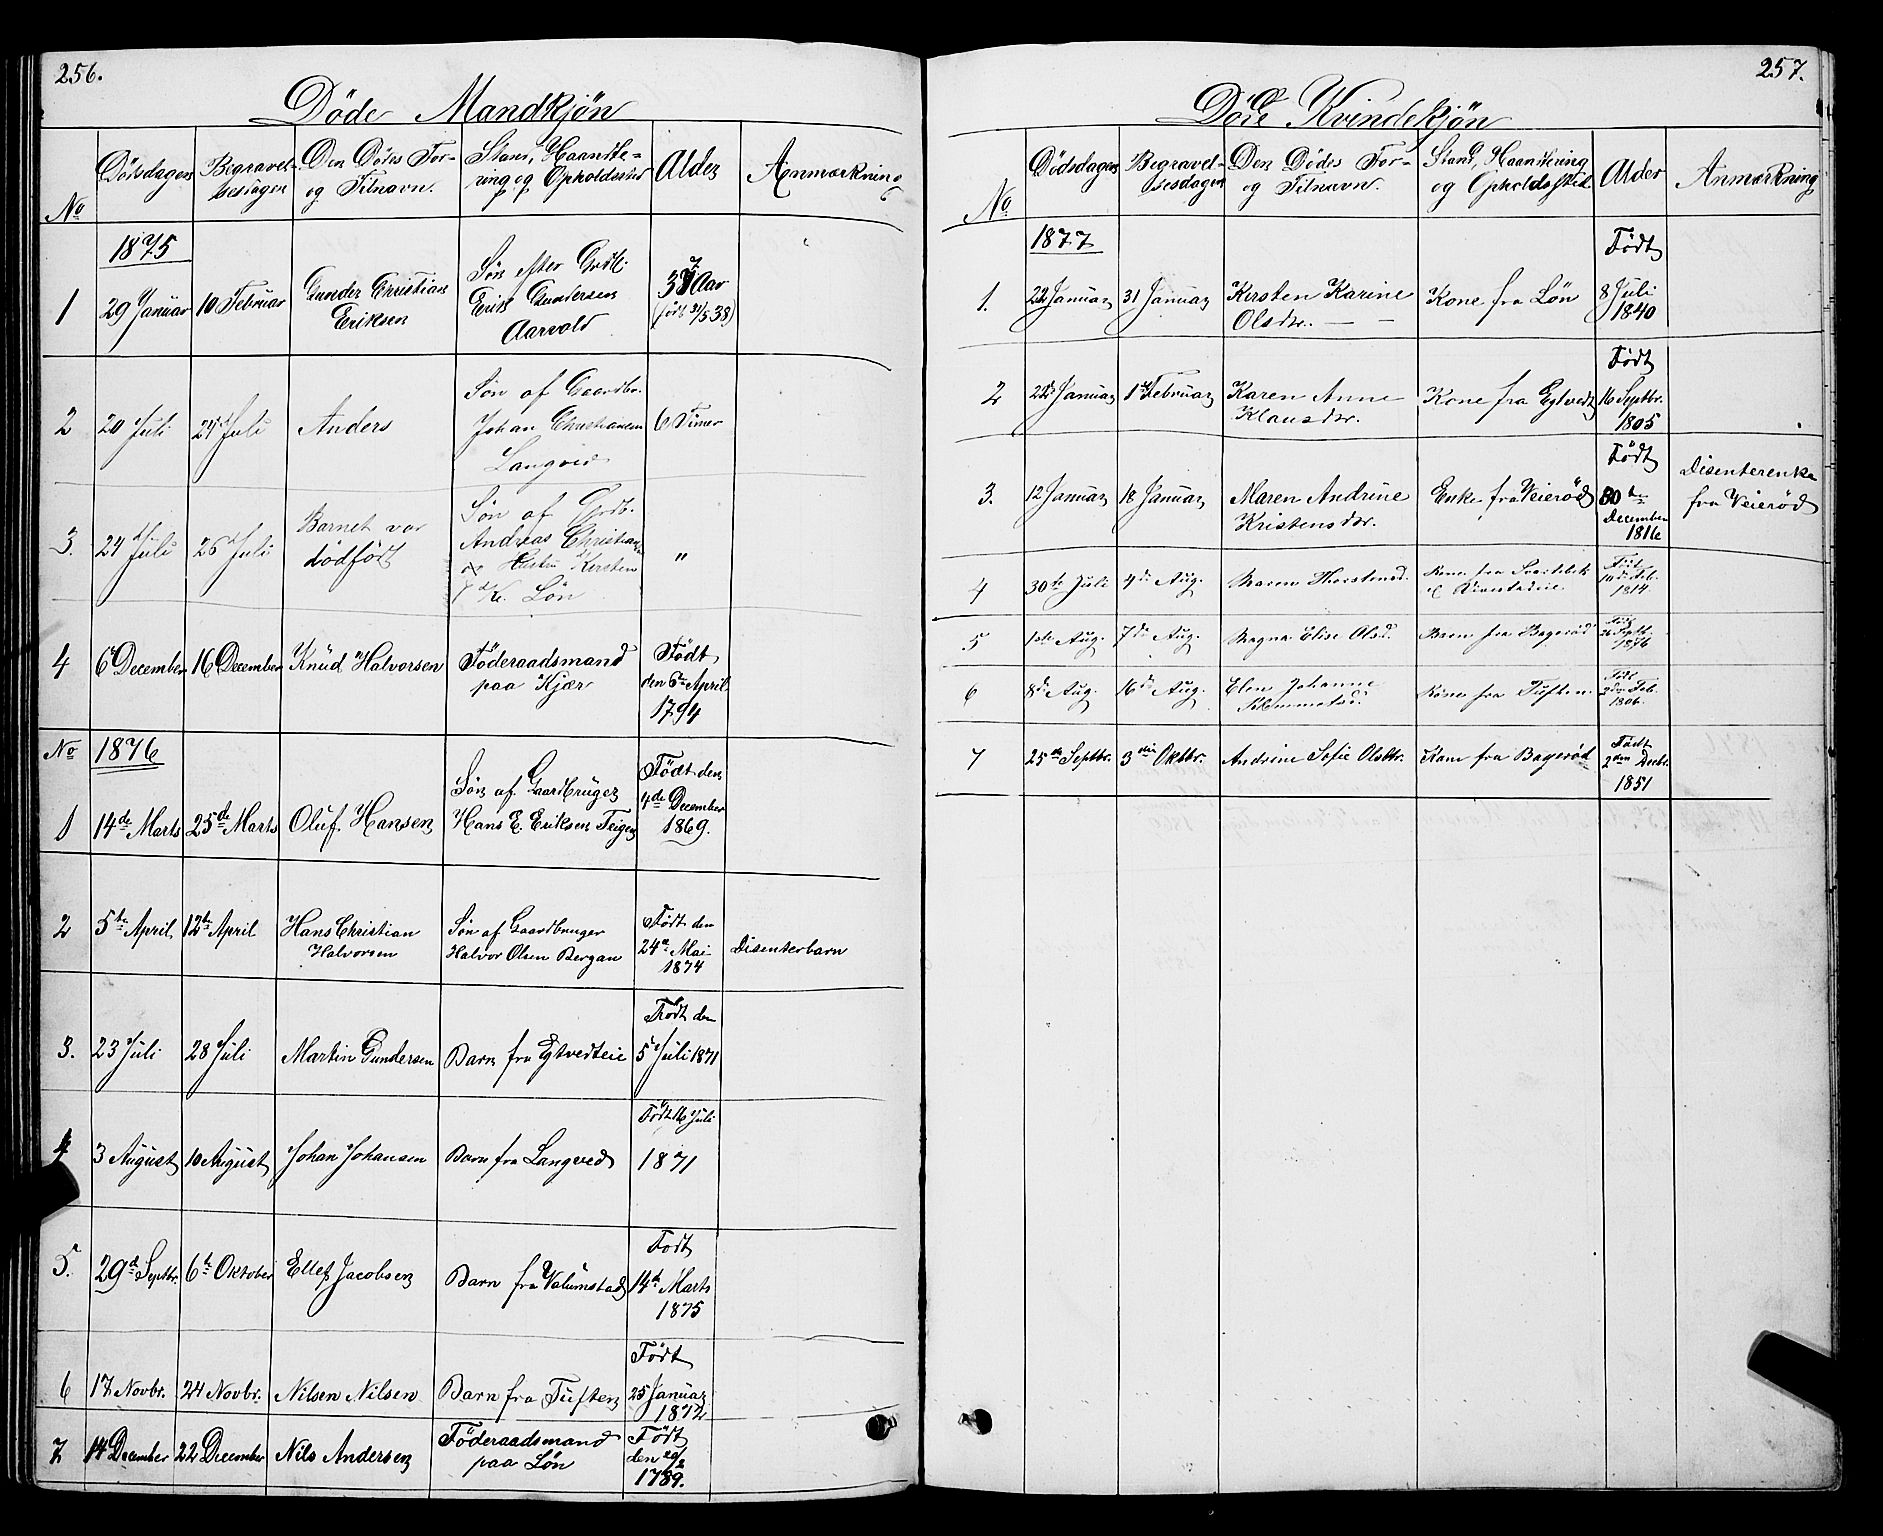 256.
Döde Mandkjön
No
Dödsdagen
Begravel-
sesdagen
Den Dödes For-
og Tilnavn.
Stand, Haandte-
ring og Opholdssted
Alder
Anmærkning
1875
1
29 Januar
10 Februar
Gunder Christian
Eriksen
Søn efter Grdb.
Erik Gundersen
Aarvold
37 Aar
(født 31/5 38)
2
20 Juli
24 Juli
Anders
Søn af Gaardbr.
Johan Christiansen
Langved
6 Timer
3.
24 Juli
26 Juli
Barnet var
dödfödt
Søn af Grdb.
Andreas Christian
Hustru Kirsten
Løn
"
4
6 December
16 December
Knud Halvorsen
Föderaadsmand
paa Kjær
Födt
den 6te April
1794
No
1876
1
14de Marts
25de Marts
Oluf Hansen
Søn af Gaardbruger
Hans E. Eriksen Teigen
Födt den
4de December
1869.
2
5te April
12te April
Hans Christian
Halvorsen
Søn af Gaardbruger
Halvor Olsen Bergan
Födt den
24de Mai
1874
Disenterbarn
3.
23 Juli
28 Juli
Martin Gundersen
Barn fra Egtvedteie
Födt den
5t Juli 1871
4
3 August
10 August
Johan Johansen
Barn fra Langved
Födt 16 Juli
1871
5.
29d Septbr.
6te Oktober
Ellef Jacobsen
Barn fra Valumstad
Födt
14de Marts
1875
6
17 Novbr.
24 Novbr.
Nilsen Nilsen
Barn fra Tuften
Födt
25 Januar
1872
7
14 December
22 December
Nils Andersen
Föderaadsmand
paa Løn
Födt
den 20/2
1789.
257.
Döde Kvindekjön
No
Dødsdagen
Begravel-
sesdagen
Den Dödes For-
og Tilnavn.
Stand, Haandtering
og Opholdssted
Alder
Anmærkning
1877
1.
22 Januar
31 Januar
Kirsten Karine
Olsdtr.
Kone fra Løn
Födt
8 Juli
1840
2
22 Januar
1 Februar
Karen Anne
Klausdtr.
Kone fra Egtvedt
Födt
16 Septbr.
1805
3.
12 Januar
18 Januar
Maren Andrine
Kristensdtr.
Enke fra Veierød
Födt
30te
December
1816
Disenterenke
fra Veierød
4
30te Juli
4de Aug.
Maren Thorstensd.
Kone fra Svartebek
Födt
Feb.
1814
5
1ste Aug.
7de Aug.
Magna Elise Olsd.
Barn fra Bagerød
26 Septb.
1876
6
8de Aug.
16de Aug.
Elen Johanne
Klemmetsd.
Kone fra Tuften.
Födt
Feb.
1806.
7
25de Septbr.
3die Oktbr.
Andrine Sofie Olsdtr.
Kone fra Bagerød
Födt
2den Decbr.
1851